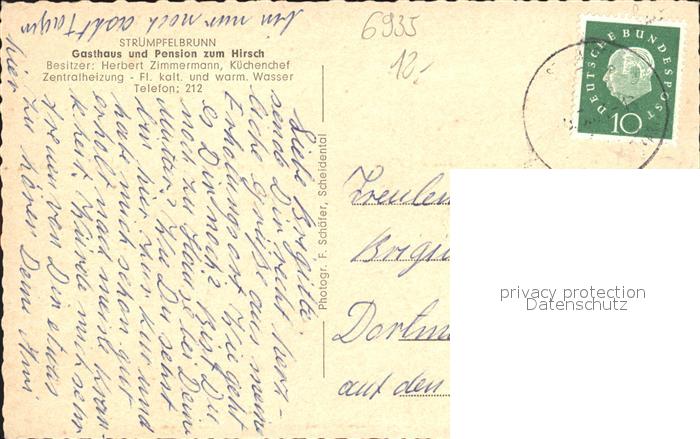 bin nur noch acht Tage
hier
STRÜMPFELBRUNN
Gasthaus und Pension zum Hirsch
Besitzer: Herbert Zimmermann, Küchenchef
Zentralheizung - Fl. kalt. und warm. Wasser
Telefon: 212
Liebe Brigitte.
sende Dir recht herz-
liche Grüße aus mein
Erholungsort. Wie geht
es Dir noch? Bist Du
noch zu Hause bei Deine
Mutter? Wie Du siehst
bin hier zur Kur und
habe mich schon gut
erholt nach meine Kran
kheit. Würde mich sehr
freuen von Dir etwas
zu hören Deine
Photogr. F. Schäfer, Scheidental
6935
12,-
DEUTSCHE BUNDESPOST
10
Dortm
auf den
privacy protection
Datenschutz